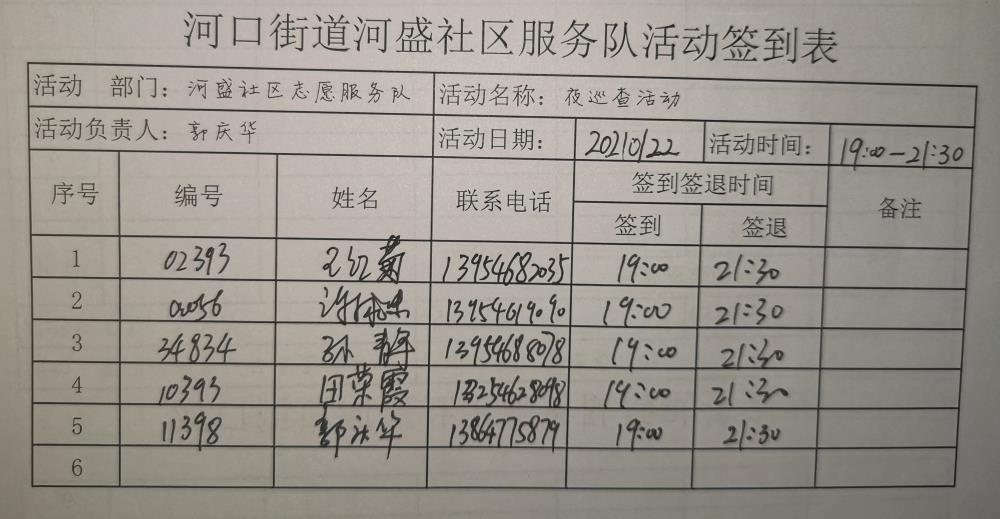 河口街道河盛社区服务队活动签到表
活动 部门：河盛社区志愿服务队 活动名称：夜巡查活动
活动负责人：郭庆华 活动日期： 20210122 活动时间： 19:00-21:30
序号 编号 姓名 联系电话 签到签退时间 备注
签到 签退
1 02393 王红菊 13954682035 19:00 21:30
2 19:00 21:30
3 34834 孙静 13954688078 19:00 21:30
4 10393 田荣霞 19:00 21:30
5 11398 郭庆华 13864775879 19:00 21:30
6